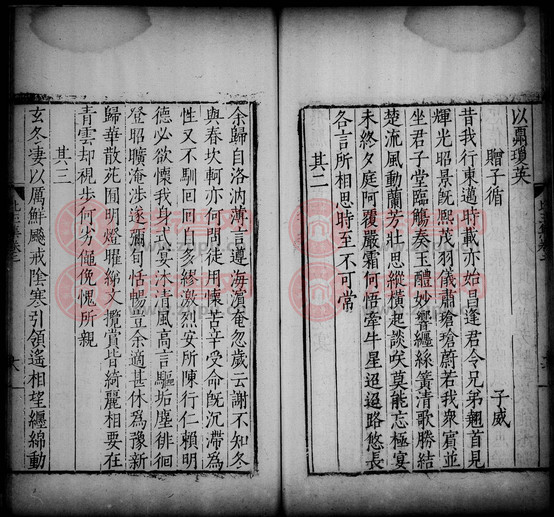 以爵瓊英
贈子循
子威
昔我行東邁時載亦始昌逢君令兄弟翹首見
輝光昭景既熙茂羽儀肅瑲瑲蔚若我衆賓並
坐君子堂臨觴奏玉醴妙響纏絲簧清歌勝結
楚流風動蘭芳壯思縱橫起談咲莫能忘極宴
未終夕庭阿覆嚴霜何悟牽牛星迢迢路悠長
各言所相思時至不可常
其二
余歸自洛汭薄言遵海濵奄忽歲云謝不知冬
與春坎軻亦何問徒用懐苦辛受命旣沉滯爲
性又不馴回回自多繆激烈安所陳行仁賴明
德必欲懐我身式宴沐清風高言驅垢塵徘徊
登昭曠淹渉遂彌旬恬暢豈余適甚休爲豫新
歸華散苑囿明燈曜綿文攬賞皆綺麗相要在
青雲却視步何劣僶俛愧所親
其三
玄冬凄以厲鮮飈戒陰寒引領遙相望纏綿動